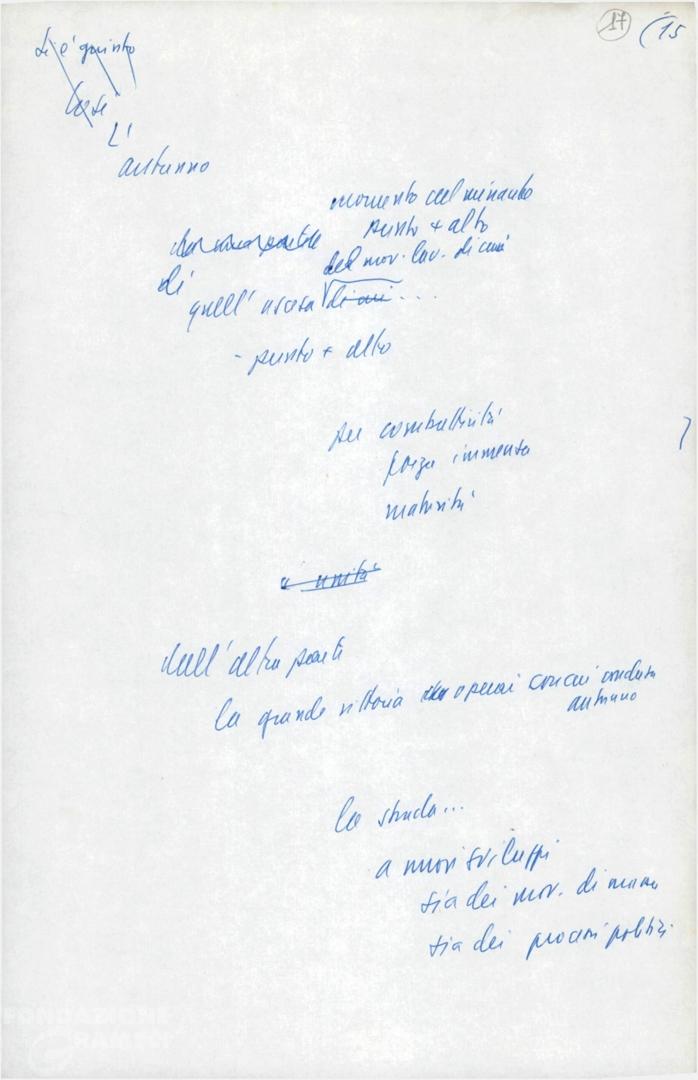 17
(15
Si è giunto
così
L'
autunno
momento culminante
punto + alto
del mov. lav. di
di
quell' ascesa di ...
- punto + alto
per combattività
forza immensa
maturità
e unità
dall' altra parte
la grande vittoria operai con cui
autunno
la strada...
a nuovi sviluppi
sia dei mov. di massa
sia dei processi politici
FONDAZIONE
GRAMSCI